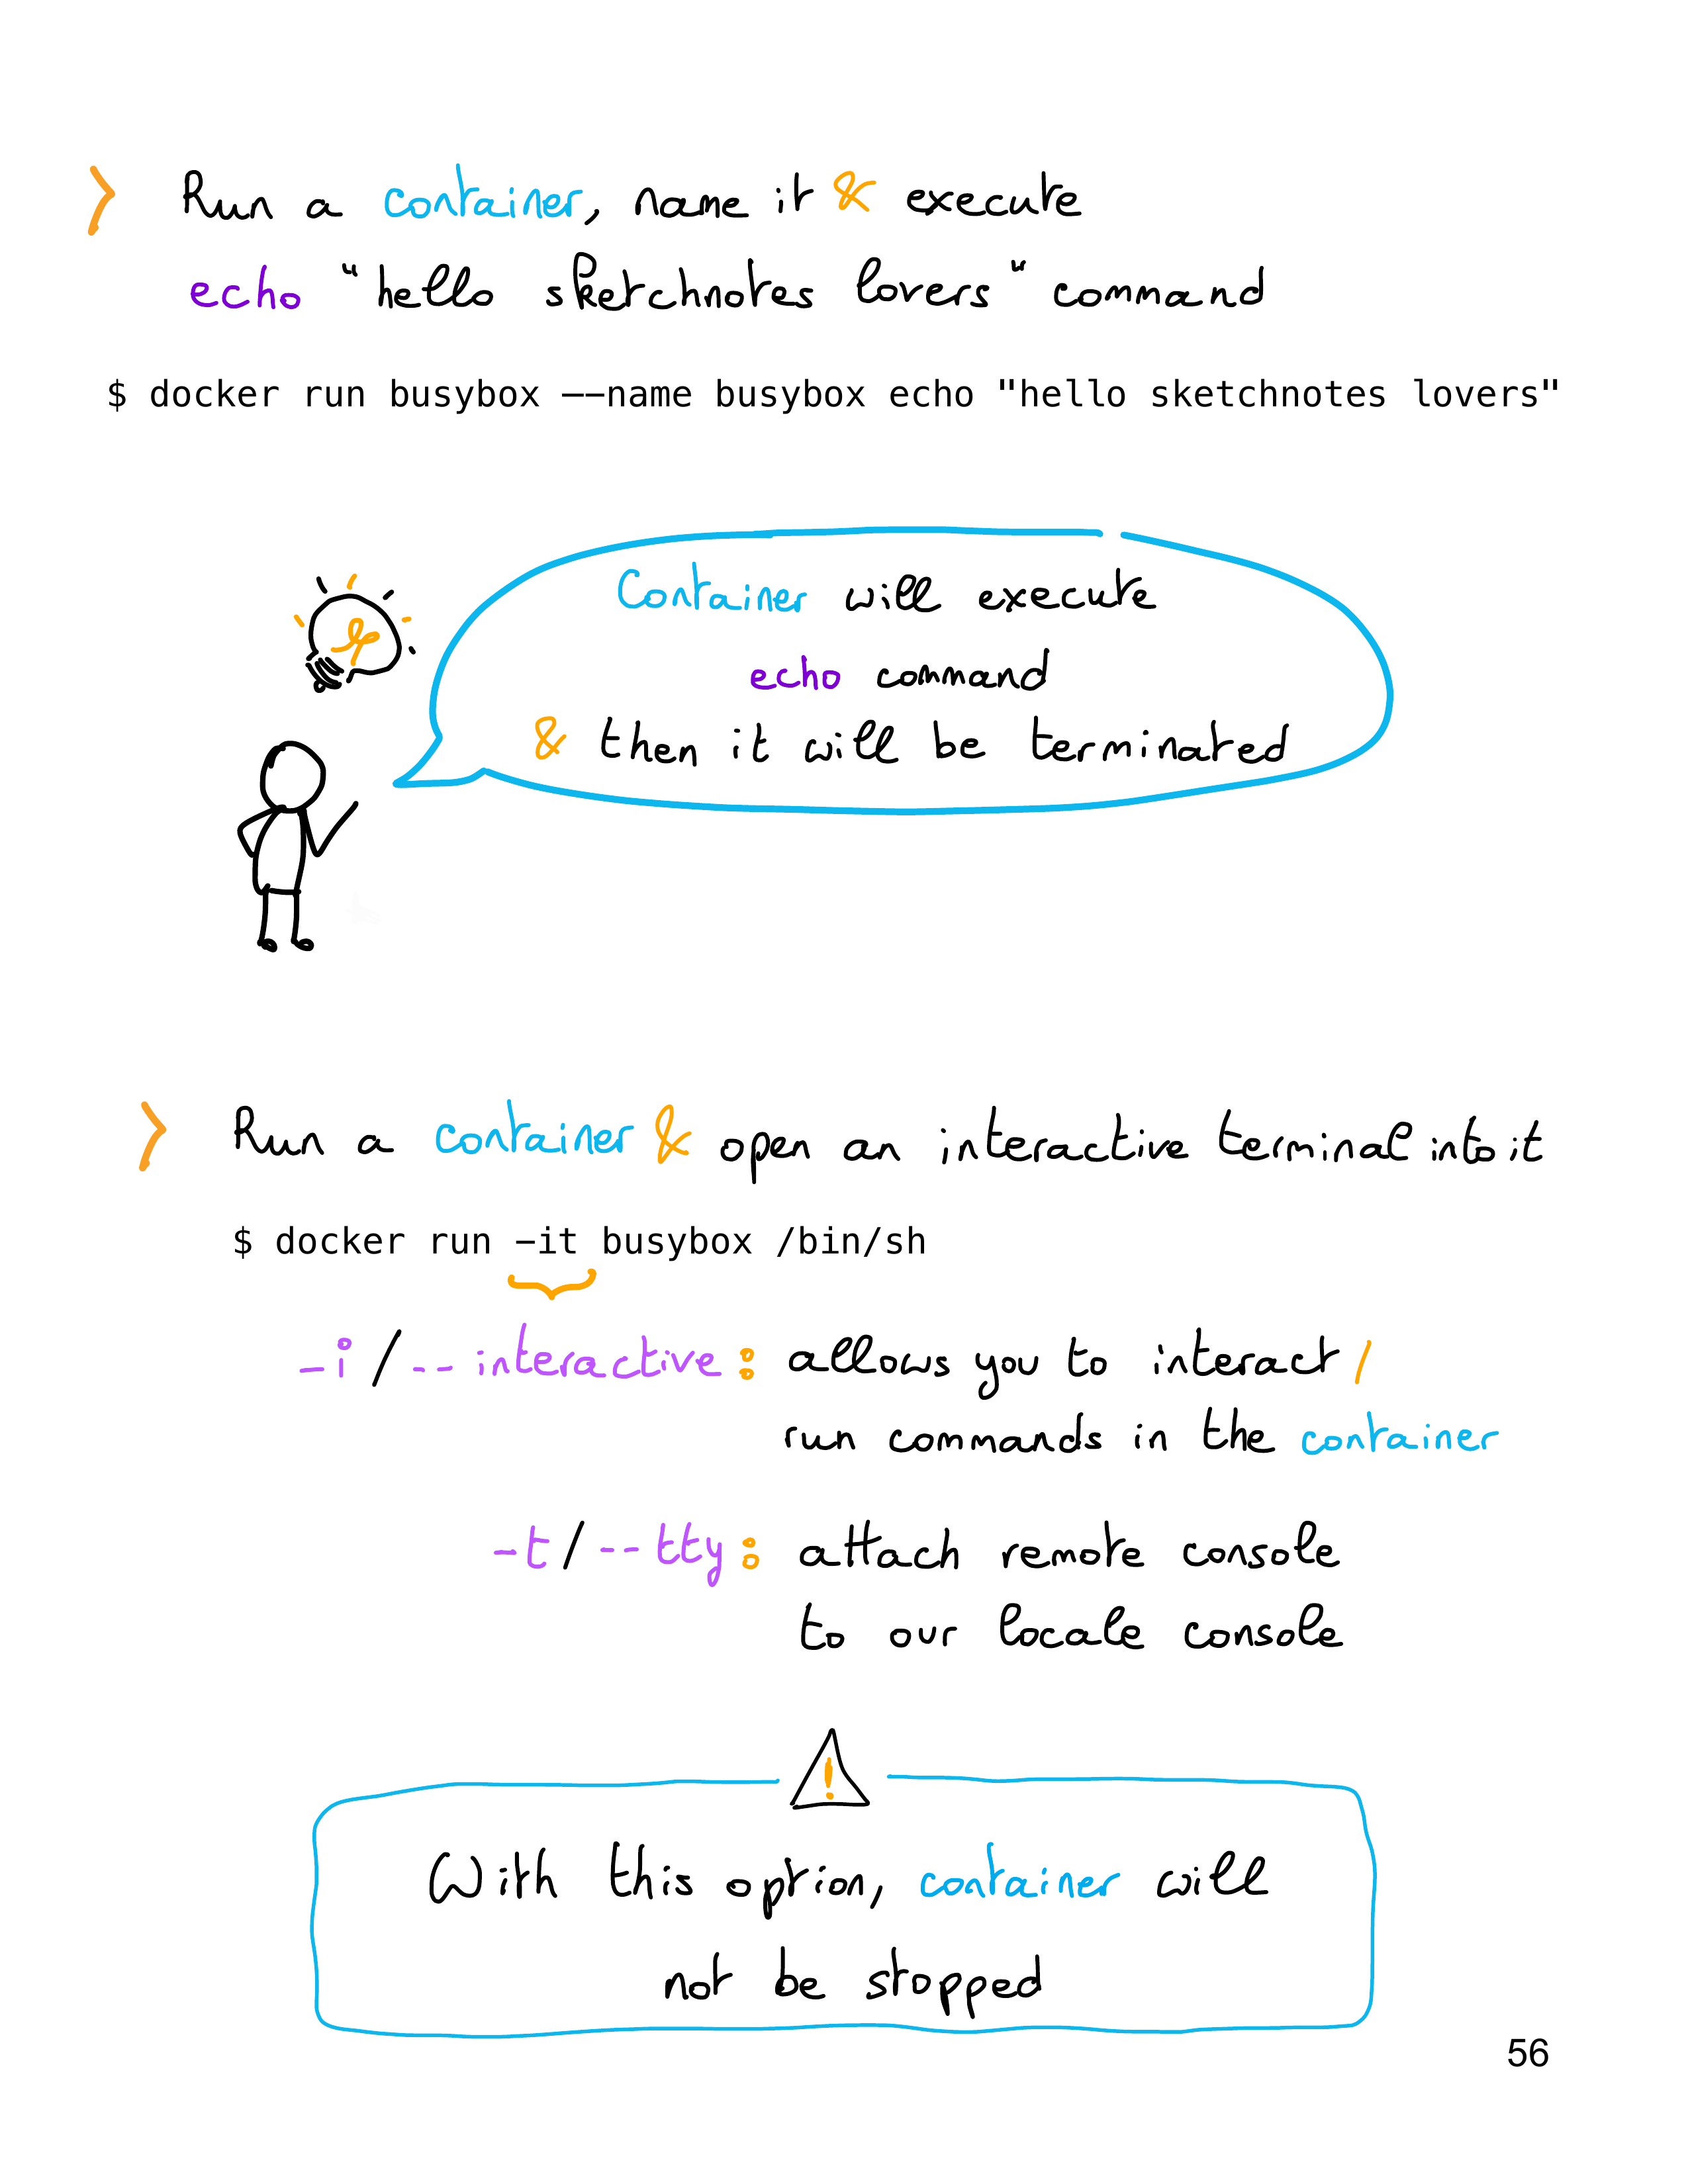 Run a container, name it & execute
echo "hello sketchnotes lovers" command
$ docker run busybox --name busybox echo "hello sketchnotes lovers"
Container will execute
echo command
& then it will be terminated
Run a container & open an interactive terminal into it
$ docker run -it busybox /bin/sh
-i / -- interactive : allows you to interact /
run commands in the container
-t / -- tty : attach remote console
to our locale console
!
With this option, container will
not be stopped
56